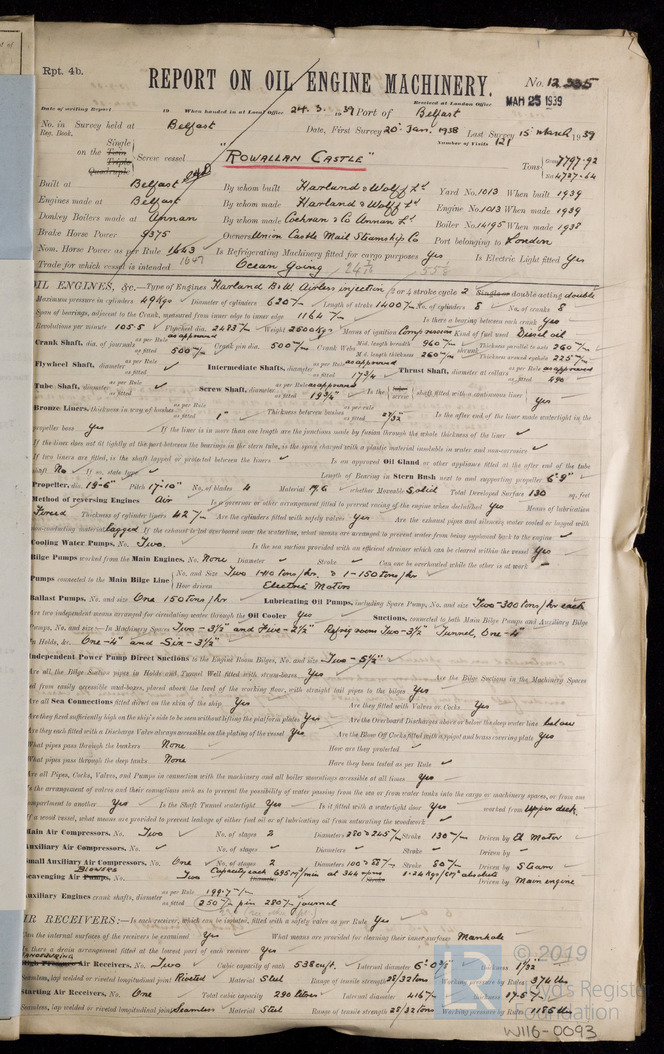 Rpt. 4b.
REPORT ON OIL ENGINE MACHINERY.
No. 12,335
Date of writing Report 19 When handed in at Local Office 24.3.1939 Port of Belfast
Received at London Office MAR 25 1939
No. in Reg. Book. Survey held at Belfast Date, First Survey 20 Jan. 1938 Last Survey 15 March 1939
Number of Visits 121
on the Single Twin Triple Quadruple Screw vessel "ROWALLAN CASTLE" Tons Gross 7797.92 Net 4727.64
Built at Belfast By whom built Harland & Wolff Ld Yard No. 1013 When built 1939
Engines made at Belfast By whom made Harland & Wolff Ld Engine No. 1013 When made 1939
Donkey Boilers made at Annan By whom made Cochran & Co Annan Ld Boiler No. 14195 When made 1938
Brake Horse Power 9375 Owners Union Castle Mail Steamship Co Port belonging to London
Nom. Horse Power as per Rule 1643 1647 Is Refrigerating Machinery fitted for cargo purposes Yes Is Electric Light fitted Yes
Trade for which vessel is intended Ocean Going
OIL ENGINES, &c.—Type of Engines Harland B&W Airless injection 2 or 4 stroke cycle 2 Single or double acting double
Maximum pressure in cylinders 49 Kgs Diameter of cylinders 620 m/m Length of stroke 1400 m/m No. of cylinders 8 No. of cranks 8
Span of bearings, adjacent to the Crank, measured from inner edge to inner edge 1164 m/m Is there a bearing between each crank Yes
Revolutions per minute 105.5 Flywheel dia. 2483 m/m Weight 2600 Kgs Means of ignition Compression Kind of fuel used Diesel oil
Crank Shaft, dia. of journals as per Rule as approved as fitted 500 m/m Crank pin dia. 500 m/m Crank Webs Mid. length breadth 960 m/m Mid. length thickness 260 m/m shrunk Thickness parallel to axis 260 m/m Thickness around eyehole 225 m/m
Flywheel Shaft, diameter as per Rule as fitted Intermediate Shafts, diameter as per Rule as approved as fitted 17 3/4 Thrust Shaft, diameter at collars as per Rule as approved as fitted 490
Tube Shaft, diameter as per Rule as fitted Screw Shaft, diameter as per Rule as approved as fitted 19 3/4" Is the shaft fitted with a continuous liner Yes
Bronze Liners, thickness in way of bushes as per Rule as fitted 1" Thickness between bushes as per rule as fitted 27/32" Is the after end of the liner made watertight in the
propeller boss Yes If the liner is in more than one length are the junctions made by fusion through the whole thickness of the liner
If the liner does not fit tightly at the part between the bearings in the stern tube, is the space charged with a plastic material insoluble in water and non-corrosive
If two liners are fitted, is the shaft lapped or protected between the liners Is an approved Oil Gland or other appliance fitted at the after end of the tube
shaft No If so, state type Length of Bearing in Stern Bush next to and supporting propeller 6'-9"
Propeller, dia. 19'-6" Pitch 17'-10" No. of blades 4 Material M.G. whether Moveable Solid Total Developed Surface 130 sq. feet
Method of reversing Engines Air Is a governor or other arrangement fitted to prevent racing of the engine when declutched Yes Means of lubrication
Forced Thickness of cylinder liners 42 m/m Are the cylinders fitted with safety valves Yes Are the exhaust pipes and silencers water cooled or lagged with
non-conducting material lagged If the exhaust is led overboard near the waterline, what means are arranged to prevent water from being syphoned back to the engine
Cooling Water Pumps, No. Two. Is the sea suction provided with an efficient strainer which can be cleared within the vessel Yes
Bilge Pumps worked from the Main Engines, No. None Diameter Stroke Can one be overhauled while the other is at work
Pumps connected to the Main Bilge Line No. and Size Two 140 tons/hr. & 1-150 tons/hr How driven Electric Motors
Ballast Pumps, No. and size One 150 tons/hr Lubricating Oil Pumps, including Spare Pump, No. and size Two-300 tons/hr each
Are two independent means arranged for circulating water through the Oil Cooler Yes Suctions, connected to both Main Bilge Pumps and Auxiliary Bilge
Pumps, No. and size:—In Machinery Spaces Two-3½" and Five-2½" Refrig room Two-3½" Tunnel, One-4"
In Holds, &c. One-4" and Six-3½"
Independent Power Pump Direct Suctions to the Engine Room Bilges, No. and size Two-5½"
Are all the Bilge Suction pipes in Holds and Tunnel Well fitted with strum-boxes Yes Are the Bilge Suctions in the Machinery Spaces
led from easily accessible mud-boxes, placed above the level of the working floor, with straight tail pipes to the bilges Yes
Are all Sea Connections fitted direct on the skin of the ship Yes Are they fitted with Valves or Cocks Yes
Are they fixed sufficiently high on the ship's side to be seen without lifting the platform plates Yes Are the Overboard Discharges above or below the deep water line below
Are they each fitted with a Discharge Valve always accessible on the plating of the vessel Yes Are the Blow Off Cocks fitted with a spigot and brass covering plate Yes
What pipes pass through the bunkers None How are they protected
What pipes pass through the deep tanks None Have they been tested as per Rule
Are all Pipes, Cocks, Valves, and Pumps in connection with the machinery and all boiler mountings accessible at all times Yes
Is the arrangement of valves and their connections such as to prevent the possibility of water passing from the sea or from water tanks into the cargo or machinery spaces, or from one
compartment to another Yes Is the Shaft Tunnel watertight Yes Is it fitted with a watertight door Yes worked from Upper deck.
If a wood vessel, what means are provided to prevent leakage of either fuel oil or of lubricating oil from saturating the woodwork
Main Air Compressors, No. Two No. of stages 2 Diameters 280 & 245 m/m Stroke 130 m/m Driven by El Motor
Auxiliary Air Compressors, No. No. of stages Diameters Stroke Driven by
Small Auxiliary Air Compressors, No. One No. of stages 2 Diameters Stroke 80 m/m Driven by Steam
Scavenging Air Pumps, Blowers No. Two Capacity each 695 m³/min at 344 1.26 Kgs/cm² absolute Driven by Main engine
Auxiliary Engines crank shafts, diameter as per Rule 199.7 m/m as fitted 250 m/m pin 280 m/m journal
AIR RECEIVERS:—Is each receiver, which can be isolated, fitted with a safety valve as per Rule Yes
Can the internal surfaces of the receivers be examined Yes What means are provided for cleaning their inner surfaces Manhole
Is there a drain arrangement fitted at the lowest part of each receiver Yes
Manoeuvring High Pressure Air Receivers, No. Two Cubic capacity of each 538 cu ft. Internal diameter thickness 1 1/32"
Seamless, lap welded or riveted longitudinal joint Riveted Material Steel Range of tensile strength 28/32 tons Working pressure by Rules 374 lbs
Starting Air Receivers, No. One Total cubic capacity 290 litres Internal diameter 416 m/m thickness 17.5 m/m
Seamless, lap welded or riveted longitudinal joint Seamless Material Steel Range of tensile strength 28/32 tons Working pressure by Rules 1185 lbs
© 2019
LR
Lloyd's Register
Foundation
W116-0093